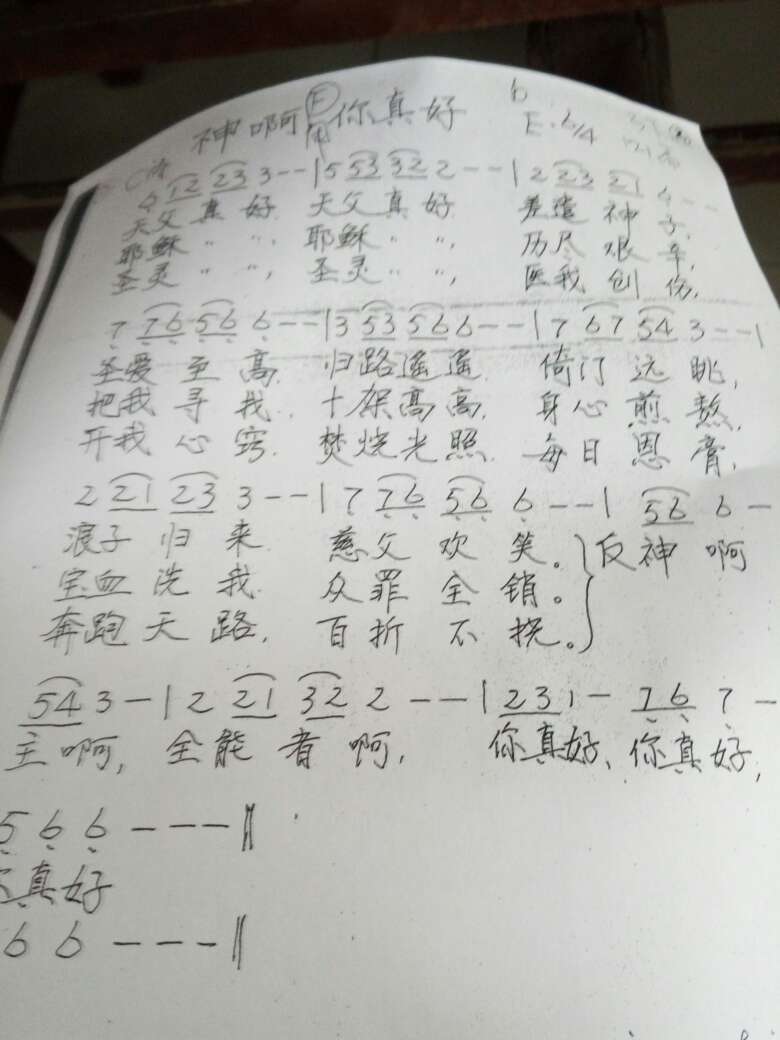 神啊你真好 E 6/4
12 23 3--|5 53 32 2--|2 23 21
天父真好 天父真好 差遣神子,
耶稣〃〃, 耶稣〃〃, 历尽艰辛,
圣灵〃〃, 圣灵〃〃, 医我创伤,
7 76 56 6--|3 53 56 6--|7 67 54 3--|
圣爱至高 归路遥遥 倚门远眺,
把我寻找. 十架高高, 身心煎熬,
开我心窍. 焚烧光照 每日恩膏,
2 21 23 3--|7 76 56 6--| 56 6-
浪子归来 慈父欢笑。 反神啊
宝血洗我 众罪全销。
奔跑天路, 百折不挠。
54 3-|2 21 32 2--|231- 76 7-
主啊, 全能者啊, 你真好、你真好,
5 6 6----||
真好
6 6----||